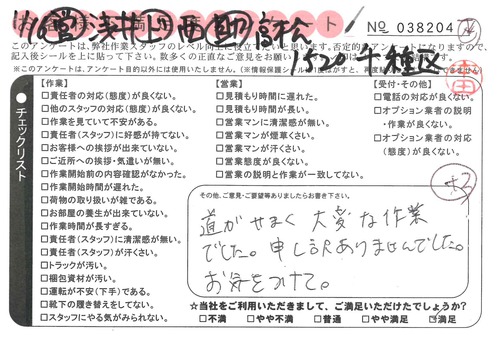 No 038204
このアンケートは、弊社作業スタッフのレベル向上に役立てたいと思います。否定的なアンケートになりますので、
記入後シールを上に貼って下さい。数多くの正直なご意見をお願い
※このアンケートは、アンケート目的以外には使用いたしません。
1520 千種区
チェックリスト
【作業】
□責任者の対応(態度)が良くない。
□他のスタッフの対応(態度)が良くない。
□作業を見ていて不安がある。
□責任者(スタッフ)に好感が持てない。
□お客様への挨拶が出来ていない。
□ご近所への挨拶・気遣いが無い。
□作業開始前の内容確認がなかった。
□作業開始時間が遅れた。
□荷物の取り扱いが雑である。
□お部屋の養生が出来ていない。
□作業時間が長すぎる。
□責任者(スタッフ)に清潔感が無い。
□責任者(スタッフ)が汗くさい。
□トラックが汚い。
□梱包資材が汚い。
□運転が不安(下手)である。
□靴下の履き替えをしてない。
□スタッフにやる気がみられない。
【営業】
□見積もり時間に遅れた。
□見積もり時間が長い。
□営業マンに清潔感が無い。
□営業マンが煙草くさい。
□営業マンが汗くさい。
□営業態度が良くない。
□営業の説明と作業が一致してない。
【受付・その他】
□電話の対応が良くない。
□オプション業者の説明
・作業が良くない。
□オプション業者の対応
(態度)が良くない。
その他、ご意見・ご要望等ありましたらお書き下さい。
道がせまく 大変な作業
でした。申し訳ありませんでした。
お気をつけて。
☆当社をご利用いただきまして、ご満足いただけたでしょうか?
□不満 □やや不満 □普通 □やや満足 ☑満足